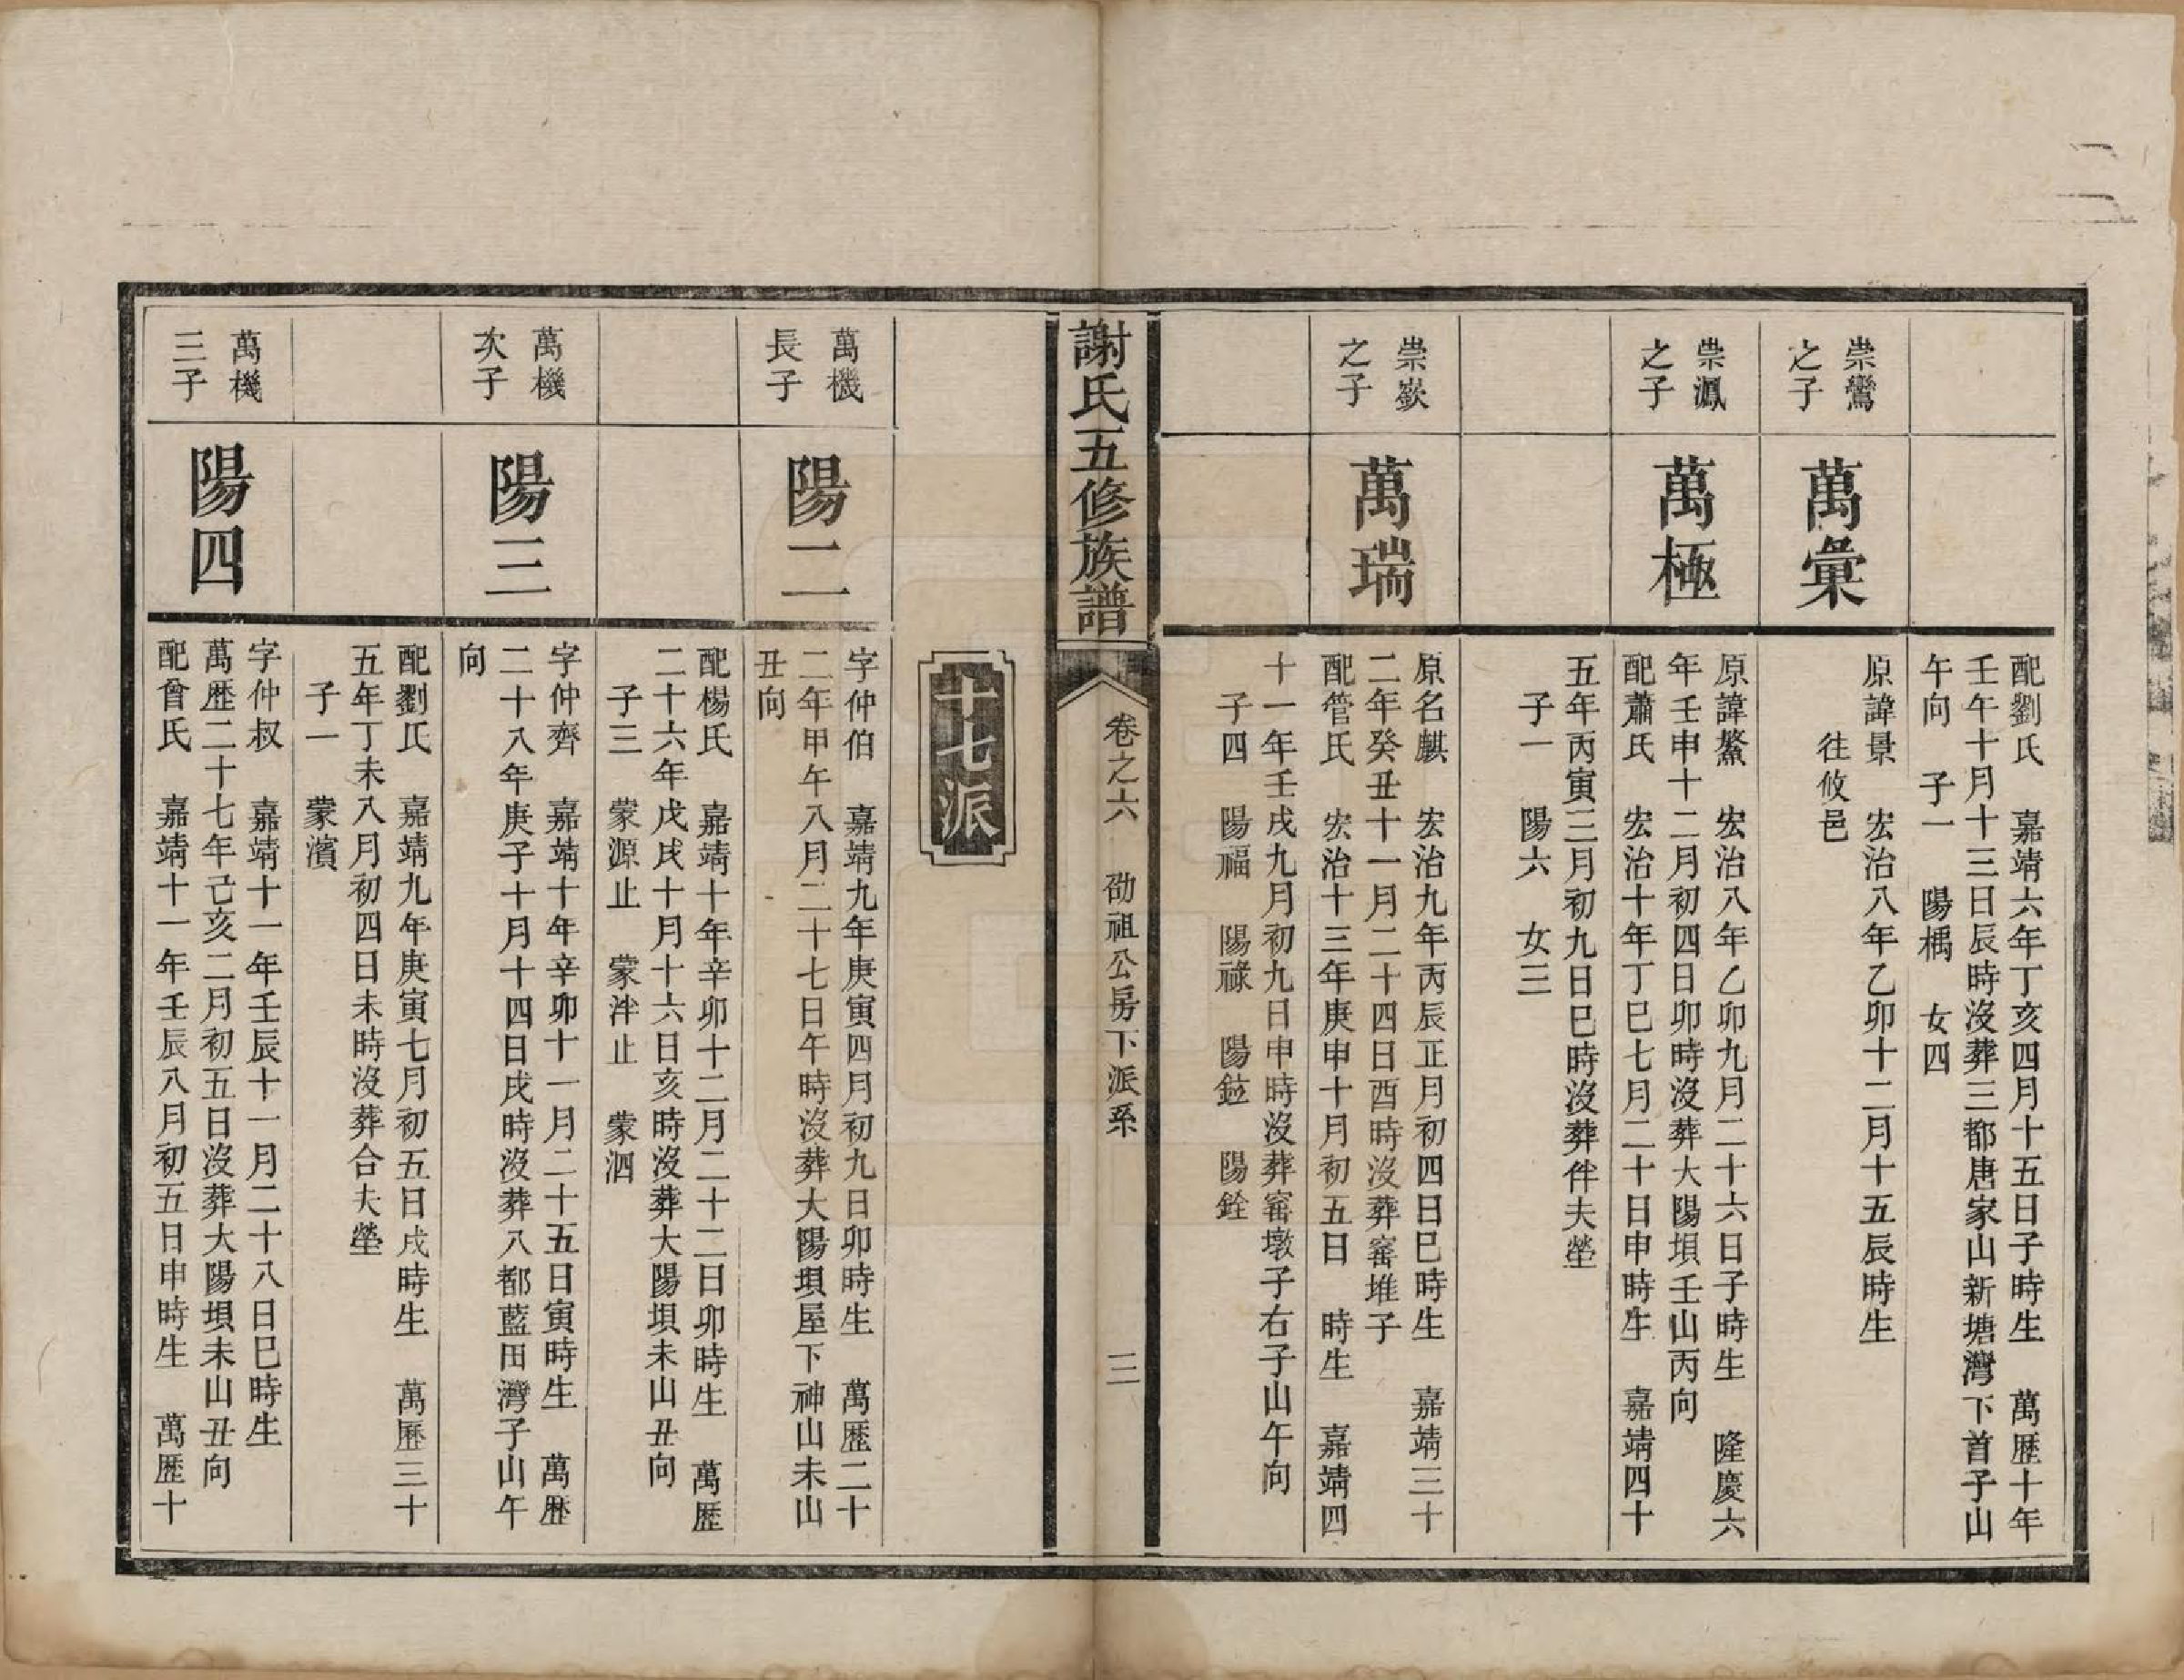 配劉氏　嘉靖六年丁亥四月十五日子時生　萬歷十年
壬午十月十三日辰時沒葬三都唐家山新塘灣下首子山
午向　子一　陽楀　女四
崇鸞
之子
萬彙
原諱景　宏治八年乙卯十二月十五辰時生
往攸邑
崇鳳
之子
萬極
原諱鰲　宏治八年乙卯九月二十六日子時生　隆慶六
年壬申十二月初四日卯時沒葬大陽垻壬山丙向
配蕭氏　宏治十年丁巳七月二十日申時生　嘉靖四十
五年丙寅三月初九日巳時沒葬伴夫塋
子一　陽六　女三
崇嶽
之子
萬瑞
原名麒　宏治九年丙辰正月初四日巳時生　嘉靖三十
二年癸丑十一月二十四日酉時沒葬窰堆子
配管氏　宏治十三年庚申十月初五日　時生　嘉靖四
十一年壬戌九月初九日申時沒葬窰墩子右子山午向
子四　陽福　陽祿　陽鉝　陽銓
謝氏五修族譜
卷之六　劭祖公房下派系　三
十七派
萬機
長子
陽二
字仲伯　嘉靖九年庚寅四月初九日卯時生　萬歷二十
二年甲午八月二十七日午時沒葬大陽垻屋下神山未山
丑向
配楊氏　嘉靖十年辛卯十二月二十二日卯時生　萬歷
二十六年戊戌十月十六日亥時沒葬大陽垻未山丑向
子三　蒙源止　蒙泮止　蒙泗
萬機
次子
陽三
字仲齊　嘉靖十年辛卯十一月二十五日寅時生　萬歷
二十八年庚子十月十四日戌時沒葬八都藍田灣子山午
向
配劉氏　嘉靖九年庚寅七月初五日戌時生　萬歷三十
五年丁未八月初四日未時沒葬合夫塋
子一　蒙濱
萬機
三子
陽四
字仲叔　嘉靖十一年壬辰十一月二十八日巳時生
萬歷二十七年己亥二月初五日沒葬大陽垻未山丑向
配曾氏　嘉靖十一年壬辰八月初五日申時生　萬歷十